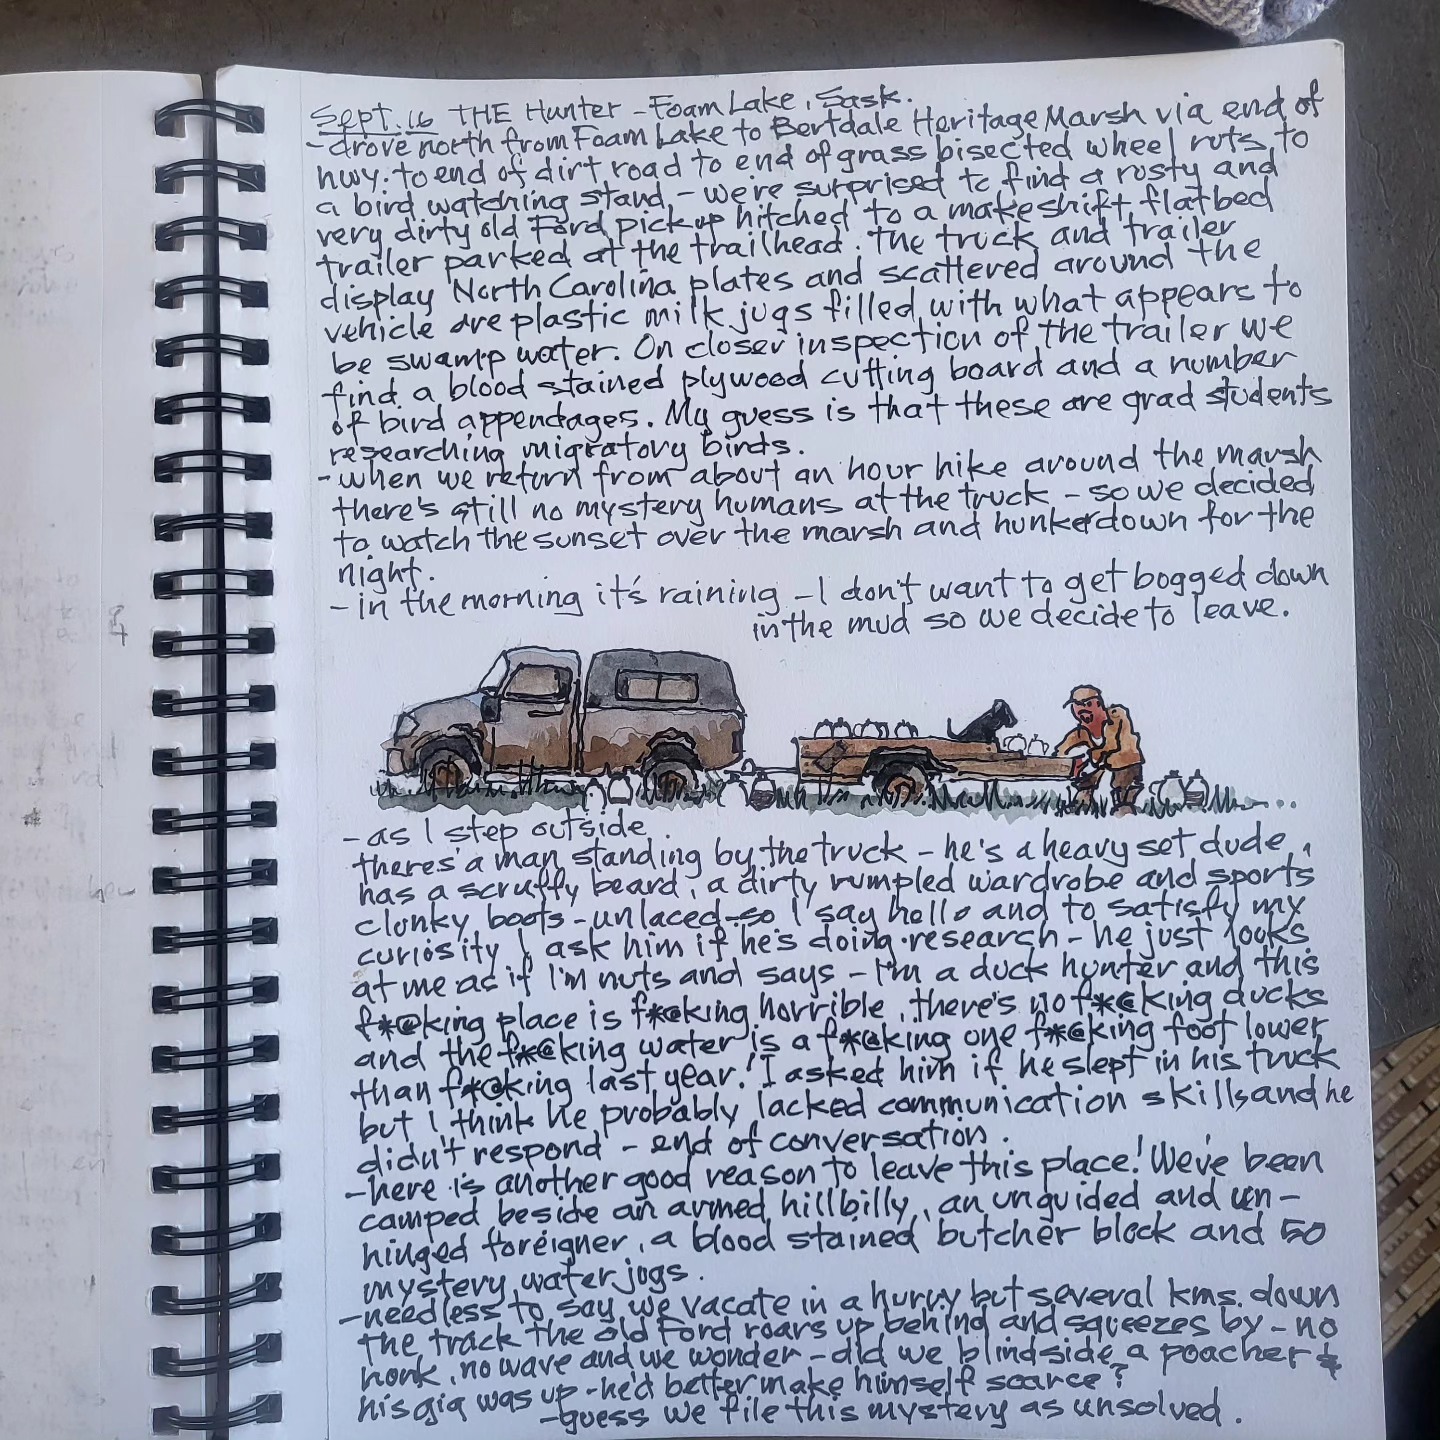 Sept.16 THE Hunter - Foam Lake, Sask.
- drove north from Foam Lake to Bertdale Heritage Marsh via end of
hwy. to end of dirt road to end of grass bisected wheel ruts, to
a bird watching stand, - we're surprised to find a rusty and
very dirty old Ford pickup hitched to a makeshift flatbed
trailer parked at the trailhead. The truck and trailer
display North Carolina plates and scattered around the
vehicle are plastic milk jugs filled with what appears to
be swamp water. On closer inspection of the trailer we
find a blood stained plywood cutting board and a number
of bird appendages. My guess is that these are grad students
researching migratory birds.
- when we return from about an hour hike around the marsh
there's still no mystery humans at the truck - so we decided
to watch the sunset over the marsh and hunkerdown for the
night.
- in the morning it's raining - I don't want to get bogged down
in the mud so we decide to leave.
- as I step outside
there's a man standing by the truck - he's a heavy set dude,
has a scruffy beard, a dirty rumpled wardrobe and sports
clunky boots - unlaced - so I say hello and to satisfy my
curiosity I ask him if he's doing research - he just looks
at me as if I'm nuts and says - I'm a duck hunter and this
f*@king place is f*@king horrible, there's no f*@king ducks
and the f*@king water is a f*@king one f*@king foot lower
than f*@king last year! I asked him if he slept in his truck
but I think he probably lacked communication skills and he
didn't respond - end of conversation.
- here is another good reason to leave this place! We've been
camped beside an armed hillbilly, an unguided and un-
hinged foreigner, a blood stained butcher block and 50
mystery water jogs.
- needless to say we vacate in a hurry but several kms. down
the track the old Ford roars up behind and squeezes by - no
honk, no wave and we wonder - did we blindside a poacher &
his gig was up - he'd better make himself scarce?
- guess we file this mystery as unsolved.